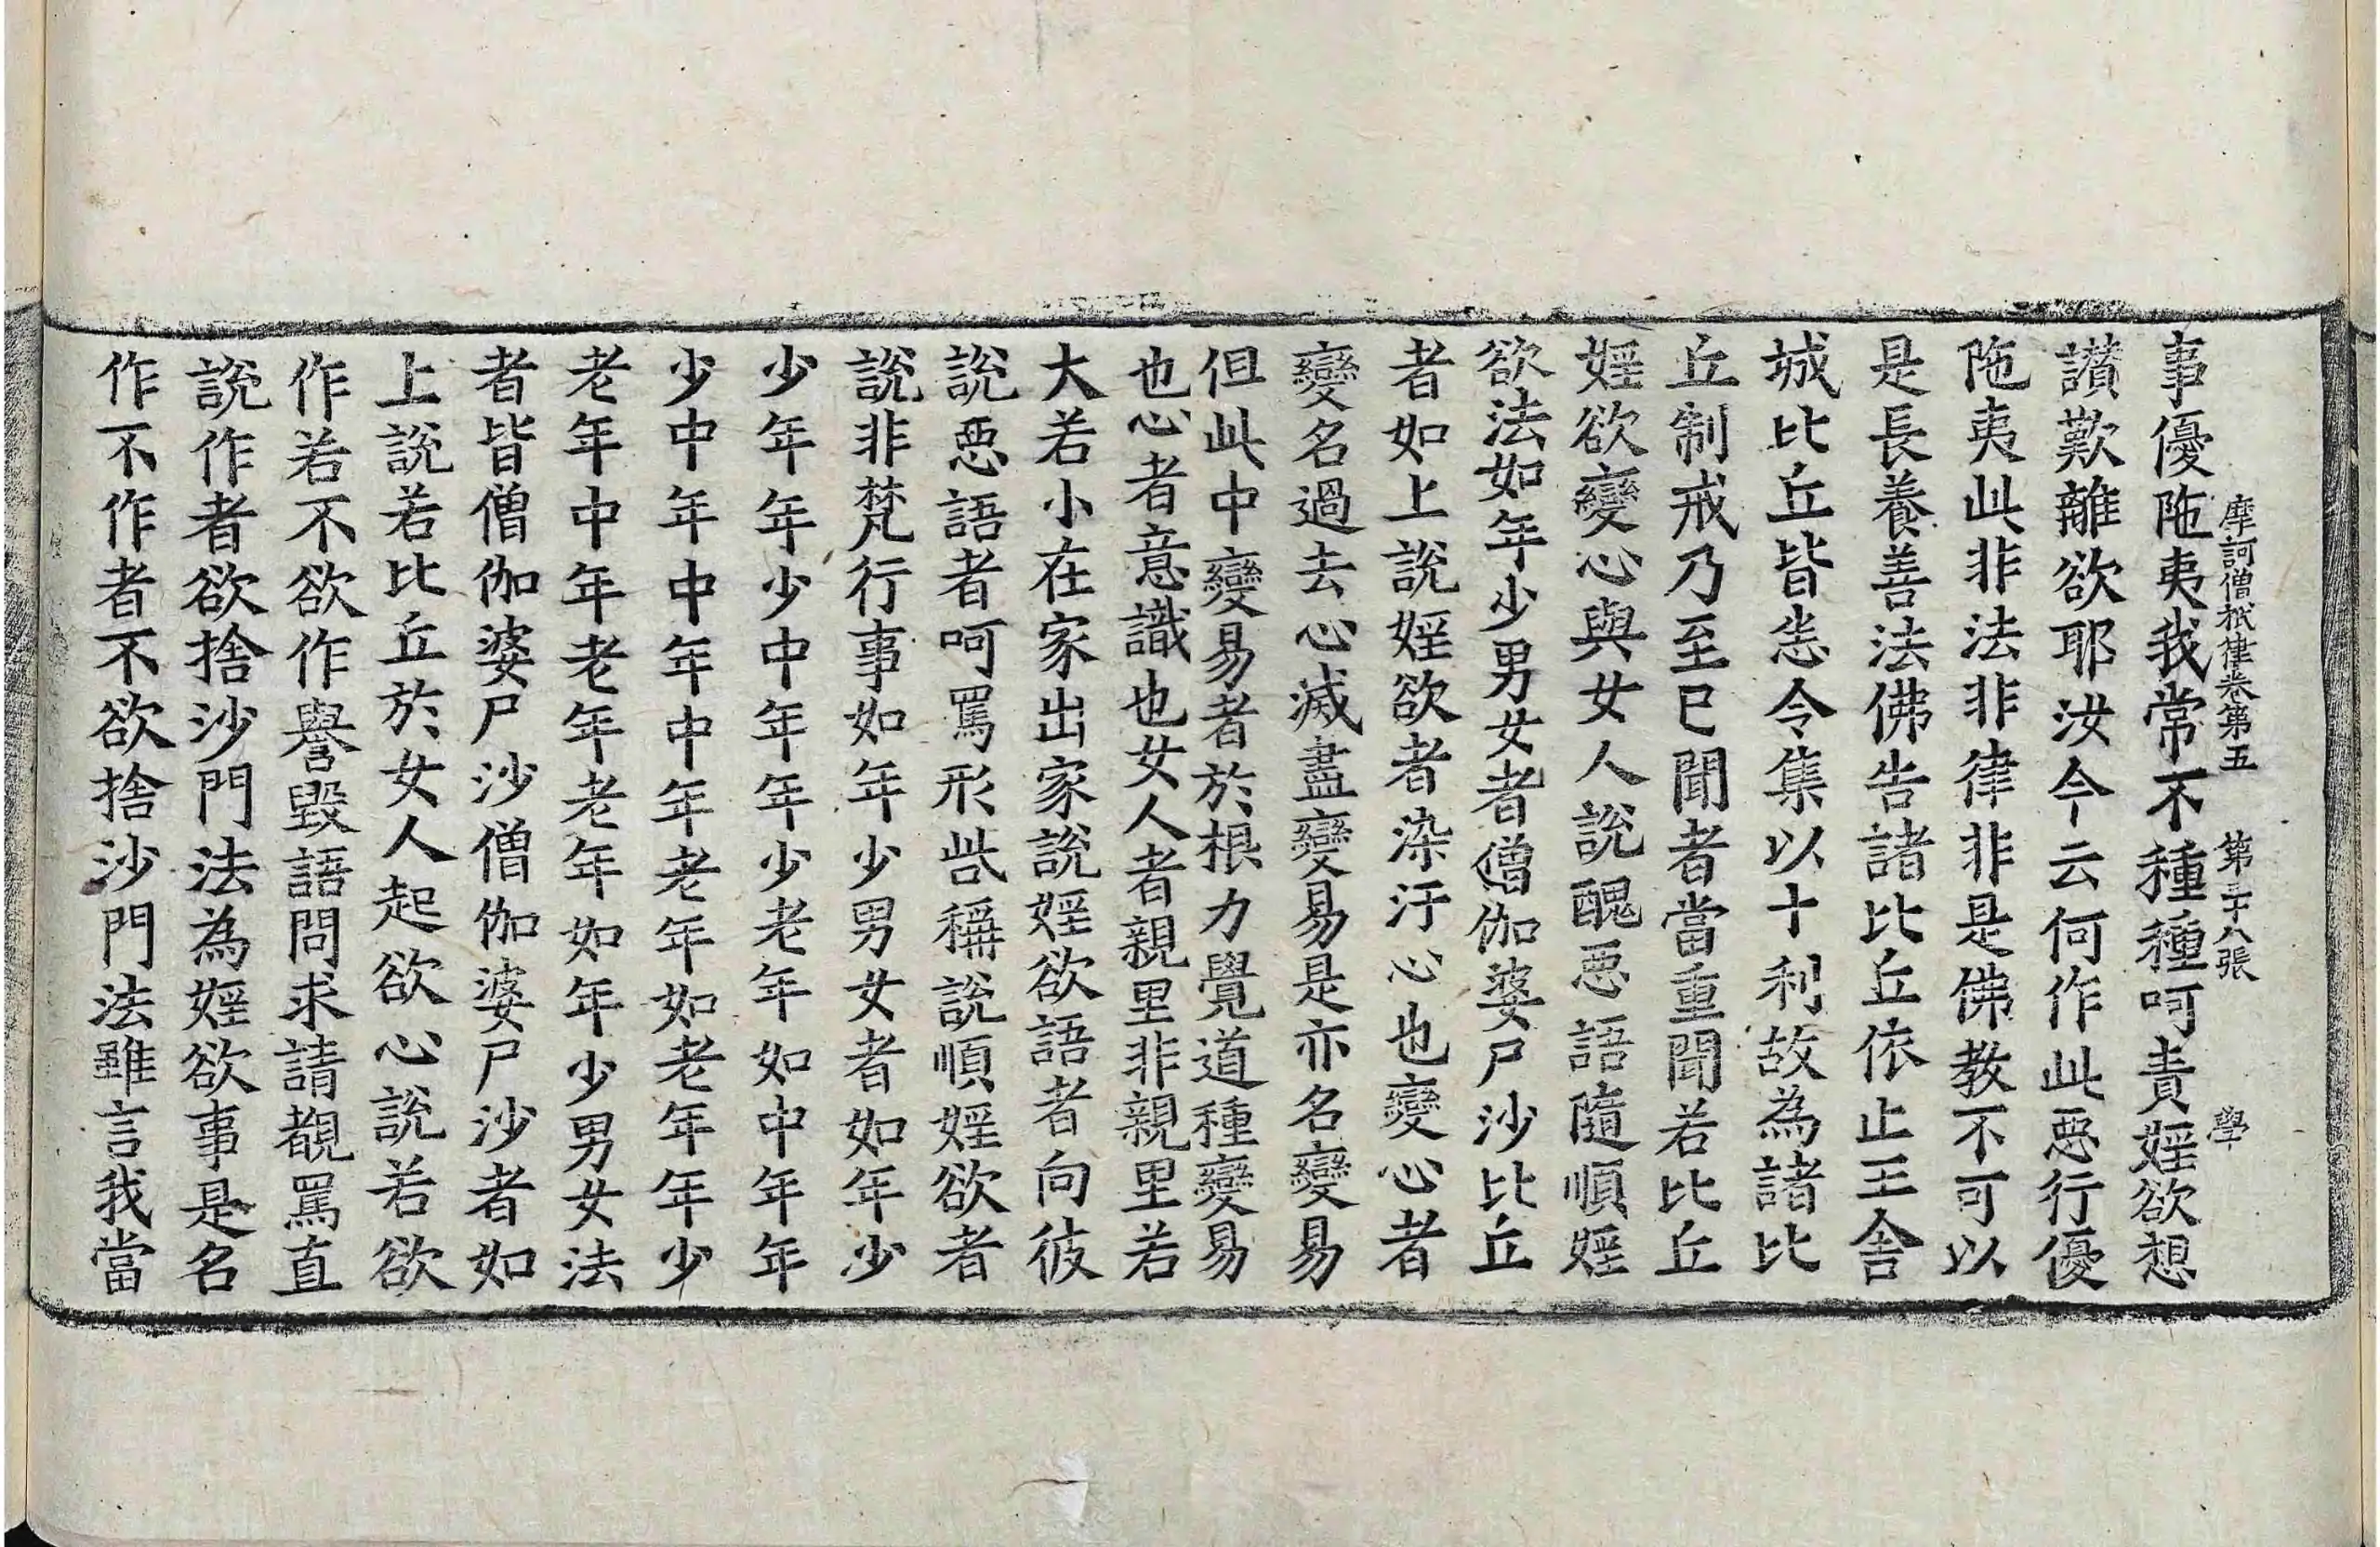 摩訶僧祇律卷第五 第三十八張 學
事優陁夷我常不種種呵責婬欲想
讃歎離欲耶汝今云何作此惡行優
陁夷此非法非律非是佛教不可以
是長養善法佛告諸比丘依止王舍
城比丘皆悉令集以十利故為諸比
丘制戒乃至已聞者當重聞若比丘
婬欲變心與女人說醜惡語隨順婬
欲法如年少男女者僧伽婆尸沙比丘
者如上說婬欲者染汙心也變心者
變名過去心滅盡變易是亦名變易
但此中變易者於根力覺道種變易
也心者意識也女人者親里非親里若
大若小在家出家說婬欲語者向彼
說惡語者呵罵形呰稱說順婬欲者
說非梵行事如年少男女者如年少
少年年少中年年少老年如中年年
少中年中年中年老年如老年年少
老年中年老年老年如年少男女法
者皆僧伽婆尸沙僧伽婆尸沙者如
上說若比丘於女人起欲心說若欲
作若不欲作譽毀語問求請覩罵直
說作者欲捨沙門法為婬欲事是名
作不作者不欲捨沙門法雖言我當